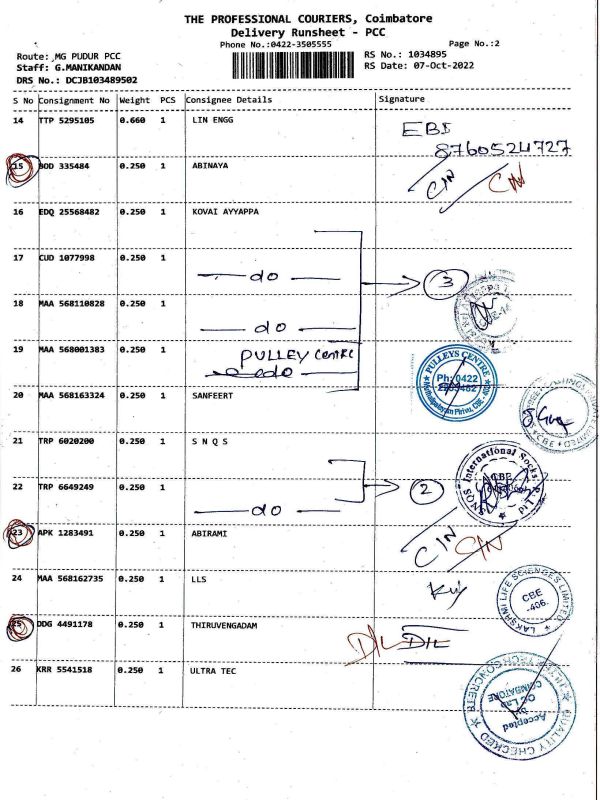 THE PROFESSIONAL COURIERS, Coimbatore
Delivery Runsheet - PCC
Phone No.:0422-3505555 Page No.:2
Route: MG PUDUR PCC RS No.: 1034895
Staff: G.MANIKANDAN RS Date: 07-Oct-2022
DRS No.: DCJB103489502
S No Consignment No Weight PCS Consignee Details Signature
14 TTP 5295105 0.660 1 LIN ENGG
EBI
8760524727
15 BOD 335484 0.250 1 ABINAYA C/N C/N
16 EDQ 25568482 0.250 1 KOVAI AYYAPPA
17 CUD 1077998 0.250 1
do 3
18 MAA 568110828 0.250 1
do
19 MAA 568001383 0.250 1
PULLEY CENTRE
do
PULLEYS CENTRE
Ph: 0422
20 MAA 568163324 0.250 1 SANFEERT
CBE
21 TRP 6020200 0.250 1 S N Q S
SNQS International Socks
CBE
22 TRP 6649249 0.250 1
do 2
23 APK 1283491 0.250 1 ABIRAMI C/N C/N
24 MAA 568162735 0.250 1 LLS
LAKSHMI LIFE SCIENCES LIMITED
CBE
-406.
25 DDG 4491178 0.250 1 THIRUVENGADAM D/L D/L
26 KRR 5541518 0.250 1 ULTRA TEC
QUALITY CHECKED
ULTRATECH CONCRETE
Accepted
by
QC Lab
COIMBATORE